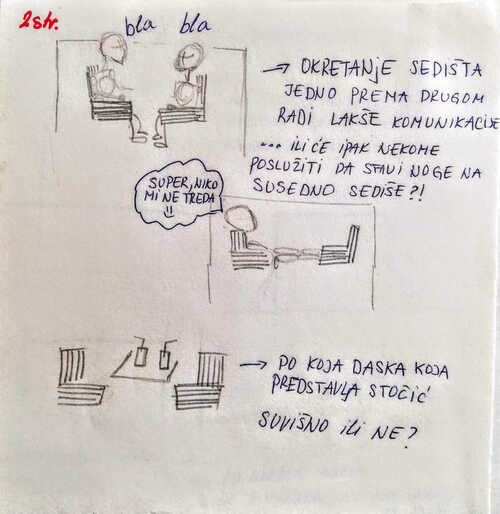 2 str.
bla bla
→ OKRETANJE SEDIŠTA
JEDNO PREMA DRUGOM
RADI LAKŠE KOMUNIKACIJE
... ILI ĆE IPAK NEKOME
POSLUŽITI DA STAVI NOGE NA
SUSEDNO SEDIŠE?!
SUPER, NIKO
MI NE TREBA
→ PO KOJA DASKA KOJA
PREDSTAVLJA STOČIĆ
SUVIŠNO ILI NE?